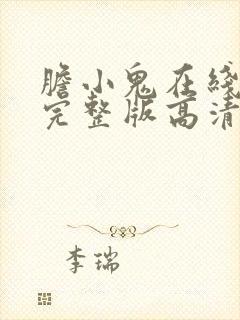 膽小鬼在綫
完整版高清
李瑞